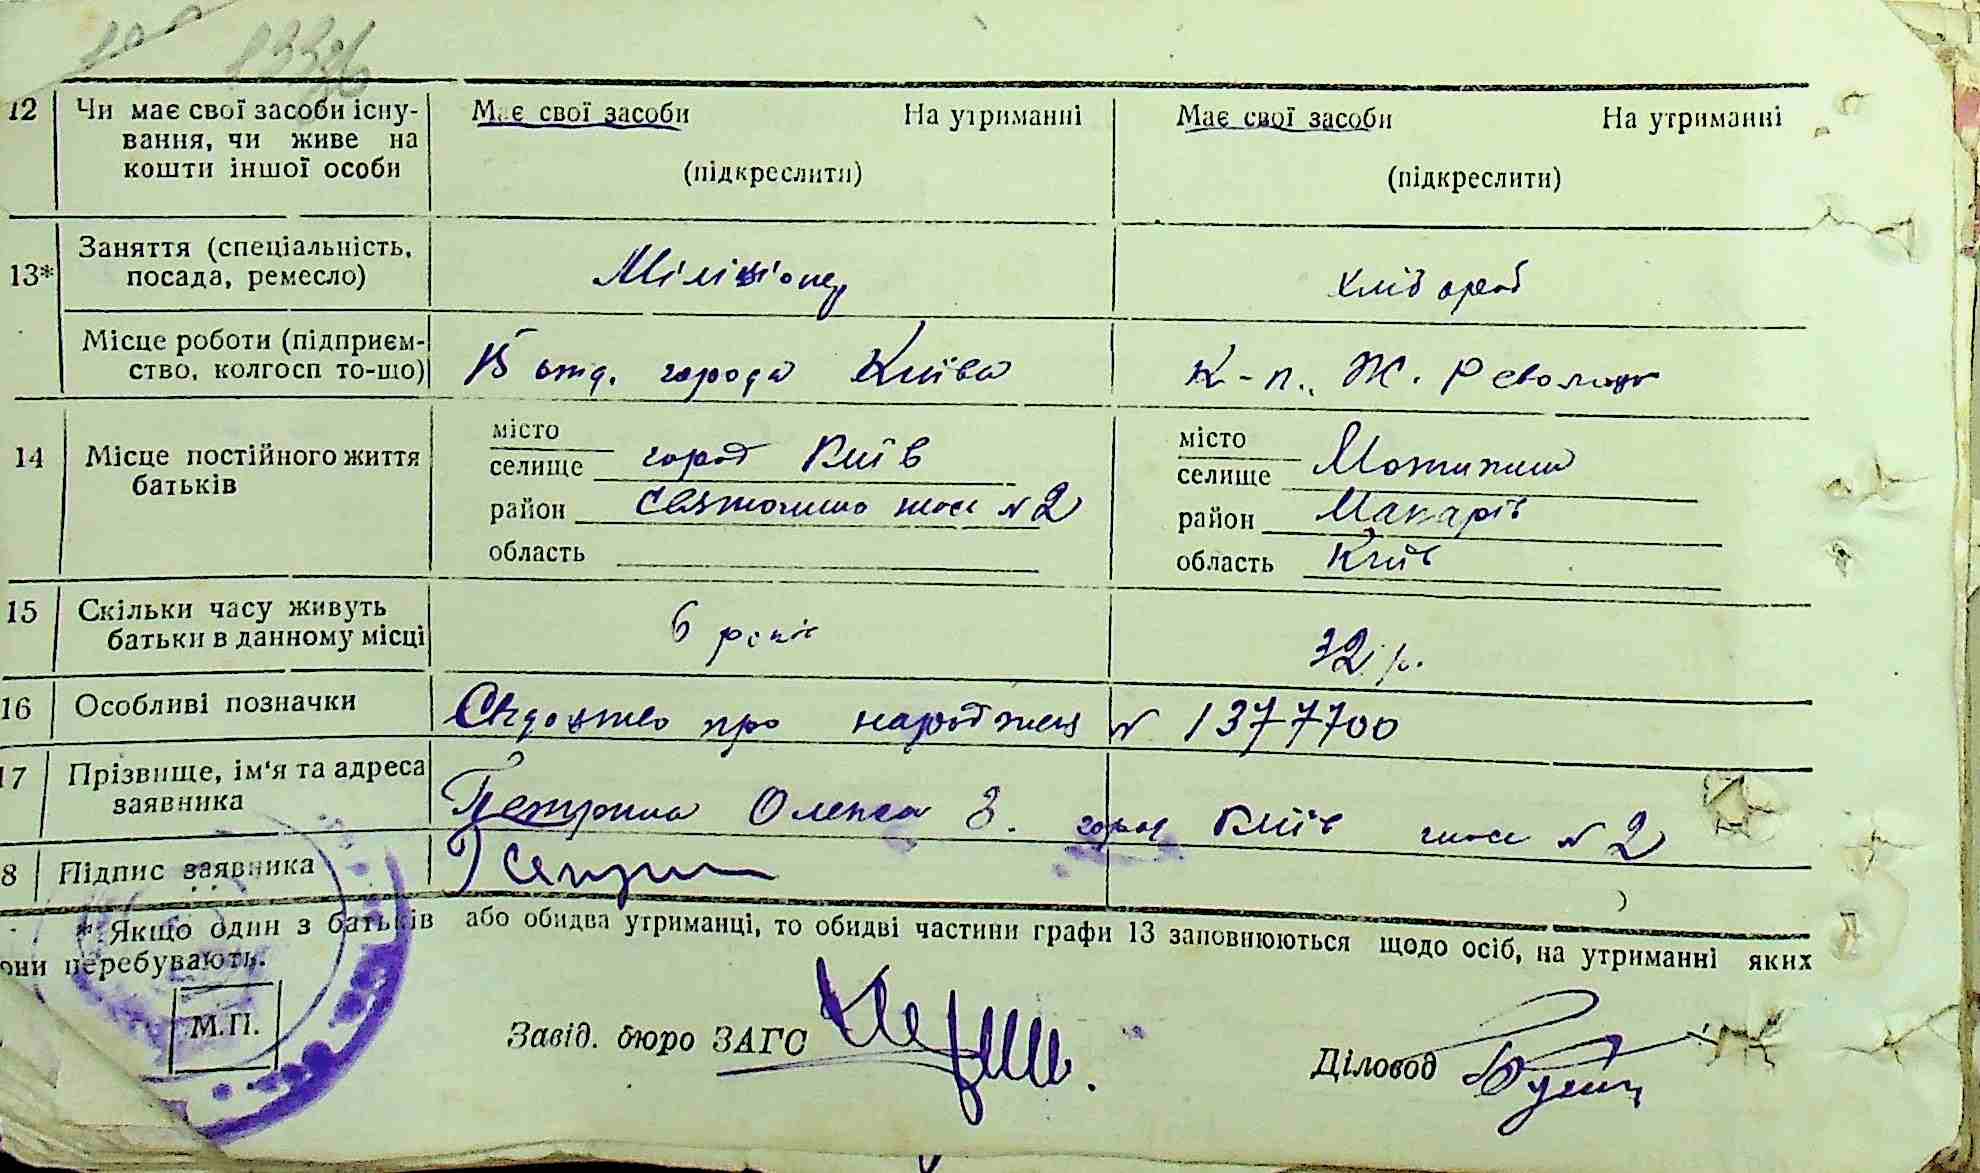 12 Чи має свої засоби існу-
вання, чи живе на
кошти іншої особи
Має свої засоби На утриманні
(підкреслити)
Має свої засоби На утриманні
(підкреслити)
13* Заняття (спеціальність,
посада, ремесло)
Міліціонер
хлібороб
Місце роботи (підприєм-
ство, колгосп то-що)
отд. города Київа
К-п. Ж. Революци
14 Місце постійного життя
батьків
місто
селище город Київ
район Святошино шосе № 2
область
місто
селище Мотижин
район Макарів
область Київ
15 Скільки часу живуть
батьки в данному місці
6 років
32 р.
16 Особливі позначки
Свідоцтво про народженя № 1377700
17 Прізвище, ім'я та адреса
заявника
Петрина Олекса З. город Київ шосе № 2
8 Підпис заявника
* Якщо один з батьків або обидва утриманці, то обидві частини графи 13 заповнюються щодо осіб, на утриманні яких
они перебувають.
М.П.
Завід. бюро ЗАГС
Діловод